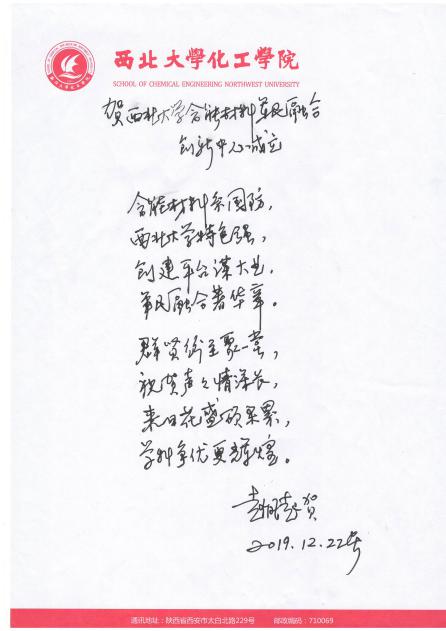 西北大學化工學院
SCHOOL OF CHEMICAL ENGINEERING NORTHWEST UNIVERSITY
贺西北大学含能材料军民融合
创新中心成立
含能材料系国防，
西北大学特色强，
创建平台谋大业，
军民融合著华章。
群贤衔至聚一堂，
祝贺声声情深长，
来日花盛硕果累，
学科争优更辉煌。
贺
2019.12.22
通讯地址：陕西省西安市太白北路229号 邮政编码：710069